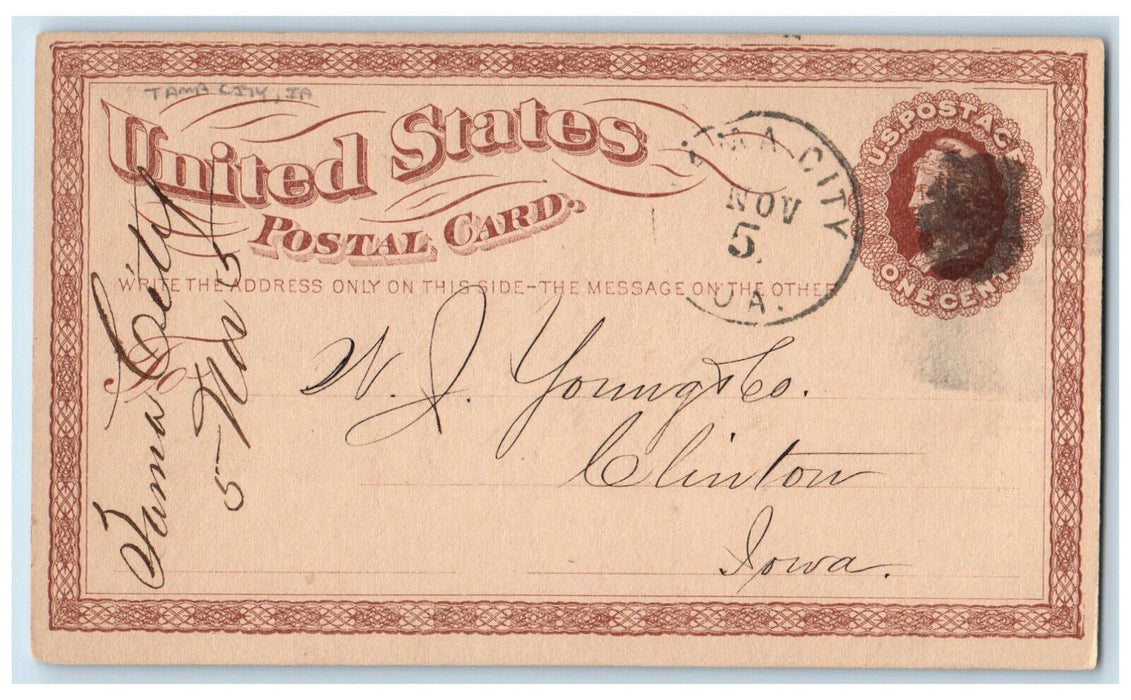 TAMA CITY, IA
United States
POSTAL CARD.
WRITE THE ADDRESS ONLY ON THIS SIDE-THE MESSAGE ON THE OTHER
U.S. POSTAGE
ONE CENT
MA CITY
NOV
5.
To
W. J. Young & Co.
Clinton
Iowa.
Tama City
5 Nov